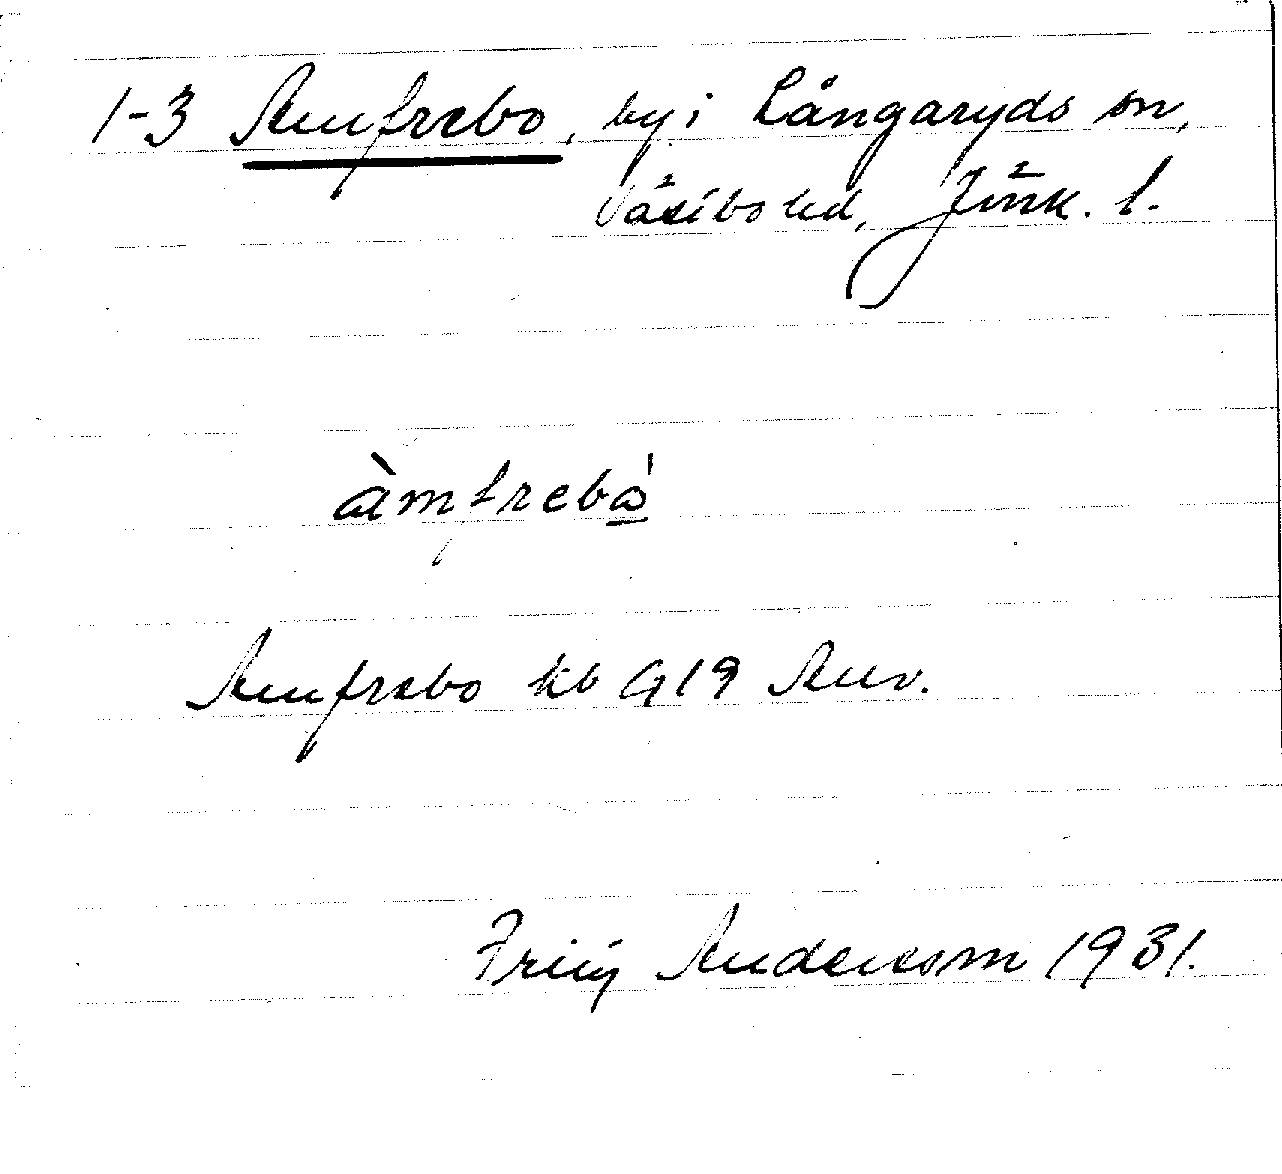 1-3 Amfrebo, by i Långaryds sn,
Västbo hd, Jönk. l.
àmfrebo̲̍
Amfrebo kb G19 Anv.
Andersson 1931.